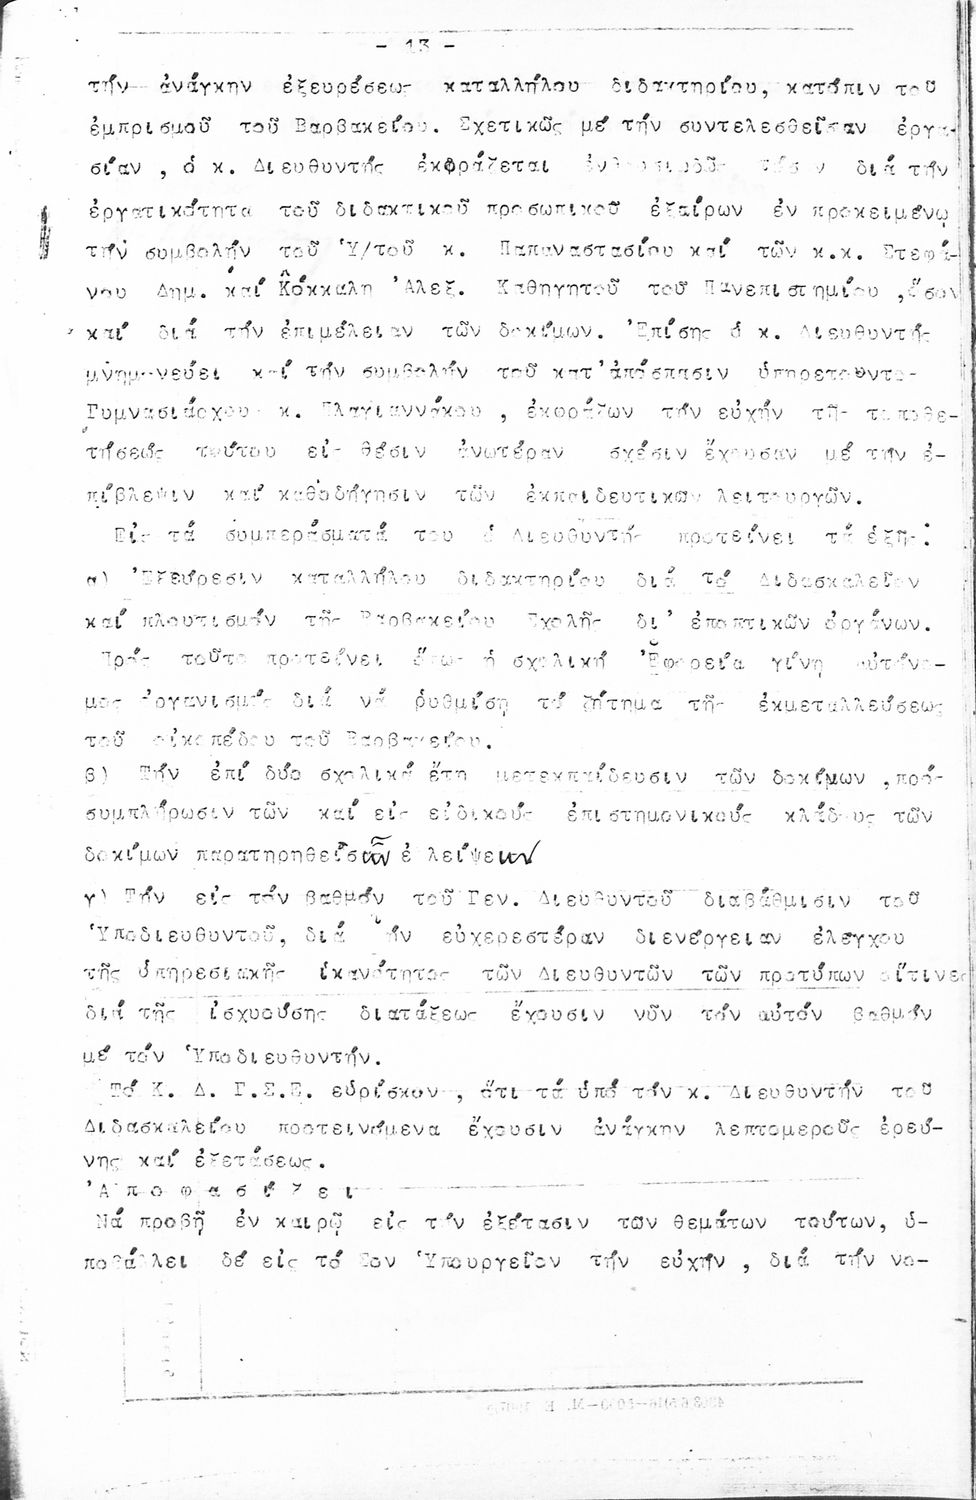 - 13 -
τήν ἀνάγκην ἐξευρέσεως καταλλήλου διδακτηρίου, κατόπιν τοῦ
ἐμπρισμοῦ τοῦ Βαρβακείου. Σχετικῶς μέ τήν συντελεσθεῖσαν ἐργα-
σίαν , ὁ κ. Διευθυντής ἐκφράζεται διά τήν
ἐργατικότητα τοῦ διδακτικοῦ προσωπικοῦ ἐξαίρων ἐν προκειμένῳ
τήν συμβολήν τοῦ Ὑ/τοῦ κ. Παπαναστασίου καί τῶν κ.κ. Στεφά-
νου Δημ. καί Κόκκαλη Ἀλεξ. Καθηγητοῦ τοῦ Πανεπιστημίου ,ὅσον
καί διά τήν ἐπιμέλειαν τῶν δοκίμων. Ἐπίσης ὁ κ. Διευθυντής
μνημονεύει καί τήν συμβολήν τοῦ κατ' ἀπόσπασιν ὑπηρετοῦντο-
Γυμνασιάρχου κ. Πλαγιαννάκου , ἐκφράζων τήν εὐχήν τῆς τοποθε-
τήσεώς τούτου εἰς θέσιν ἀνωτέραν σχέσιν ἔχουσαν μέ τήν ἐ-
πίβλεψιν καί καθοδήγησιν τῶν ἐκπαιδευτικῶν λειτουργῶν.
Εἰς τά συμπεράσματά του ὁ Διευθυντής προτείνει τά ἑξῆς:
α) Ἐξεύρεσιν καταλλήλου διδακτηρίου διά τό Διδασκαλεῖον
καί πλουτισμόν τῆς Βαρβακείου Σχολῆς δι' ἐποπτικῶν ὀργάνων.
Πρός τοῦτο προτείνει ὅπως ἡ σχολική Ἐφορεία γίνῃ αὐτόνο-
μος ὀργανισμός διά νά ρυθμίσῃ τό ζήτημα τῆς ἐκμεταλλεύσεως
τοῦ οἰκοπέδου τοῦ Βαρβακείου.
β) Τήν ἐπί δύο σχολικά ἔτη μετεκπαίδευσιν τῶν δοκίμων ,πρός
συμπλήρωσιν τῶν καί εἰς εἰδικούς ἐπιστημονικούς κλάδους τῶν
δοκίμων παρατηρηθεισῶν ἐ λείψεων
γ) Τήν εἰς τόν βαθμόν τοῦ Γεν. Διευθυντοῦ διαβάθμισιν τοῦ
Ὑποδιευθυντοῦ, διά τήν εὐχερεστέραν διενέργειαν ἐλέγχου
τῆς ὑπηρεσιακῆς ἱκανότητος τῶν Διευθυντῶν τῶν προτύπων οἵτινες
διά τῆς ἰσχυούσης διατάξεως ἔχουσιν νῦν τόν αὐτόν βαθμόν
μέ τόν Ὑποδιευθυντήν.
Τό Κ. Δ. Γ.Σ.Ε. εὑρίσκον , ὅτι τά ὑπό τοῦ κ. Διευθυντήν τοῦ
Διδασκαλείου προτεινόμενα ἔχουσιν ἀνάγκην λεπτομεροῦς ἐρεύ-
νης καί ἐξετάσεως.
Ἀ π ο φ α σ ί ζ ε ι
Νά προβῇ ἐν καιρῷ εἰς τήν ἐξέτασιν τῶν θεμάτων τούτων, ὑ-
ποβάλλει δέ εἰς τό Σον Ὑπουργεῖον τήν εὐχήν , διά τήν νο-